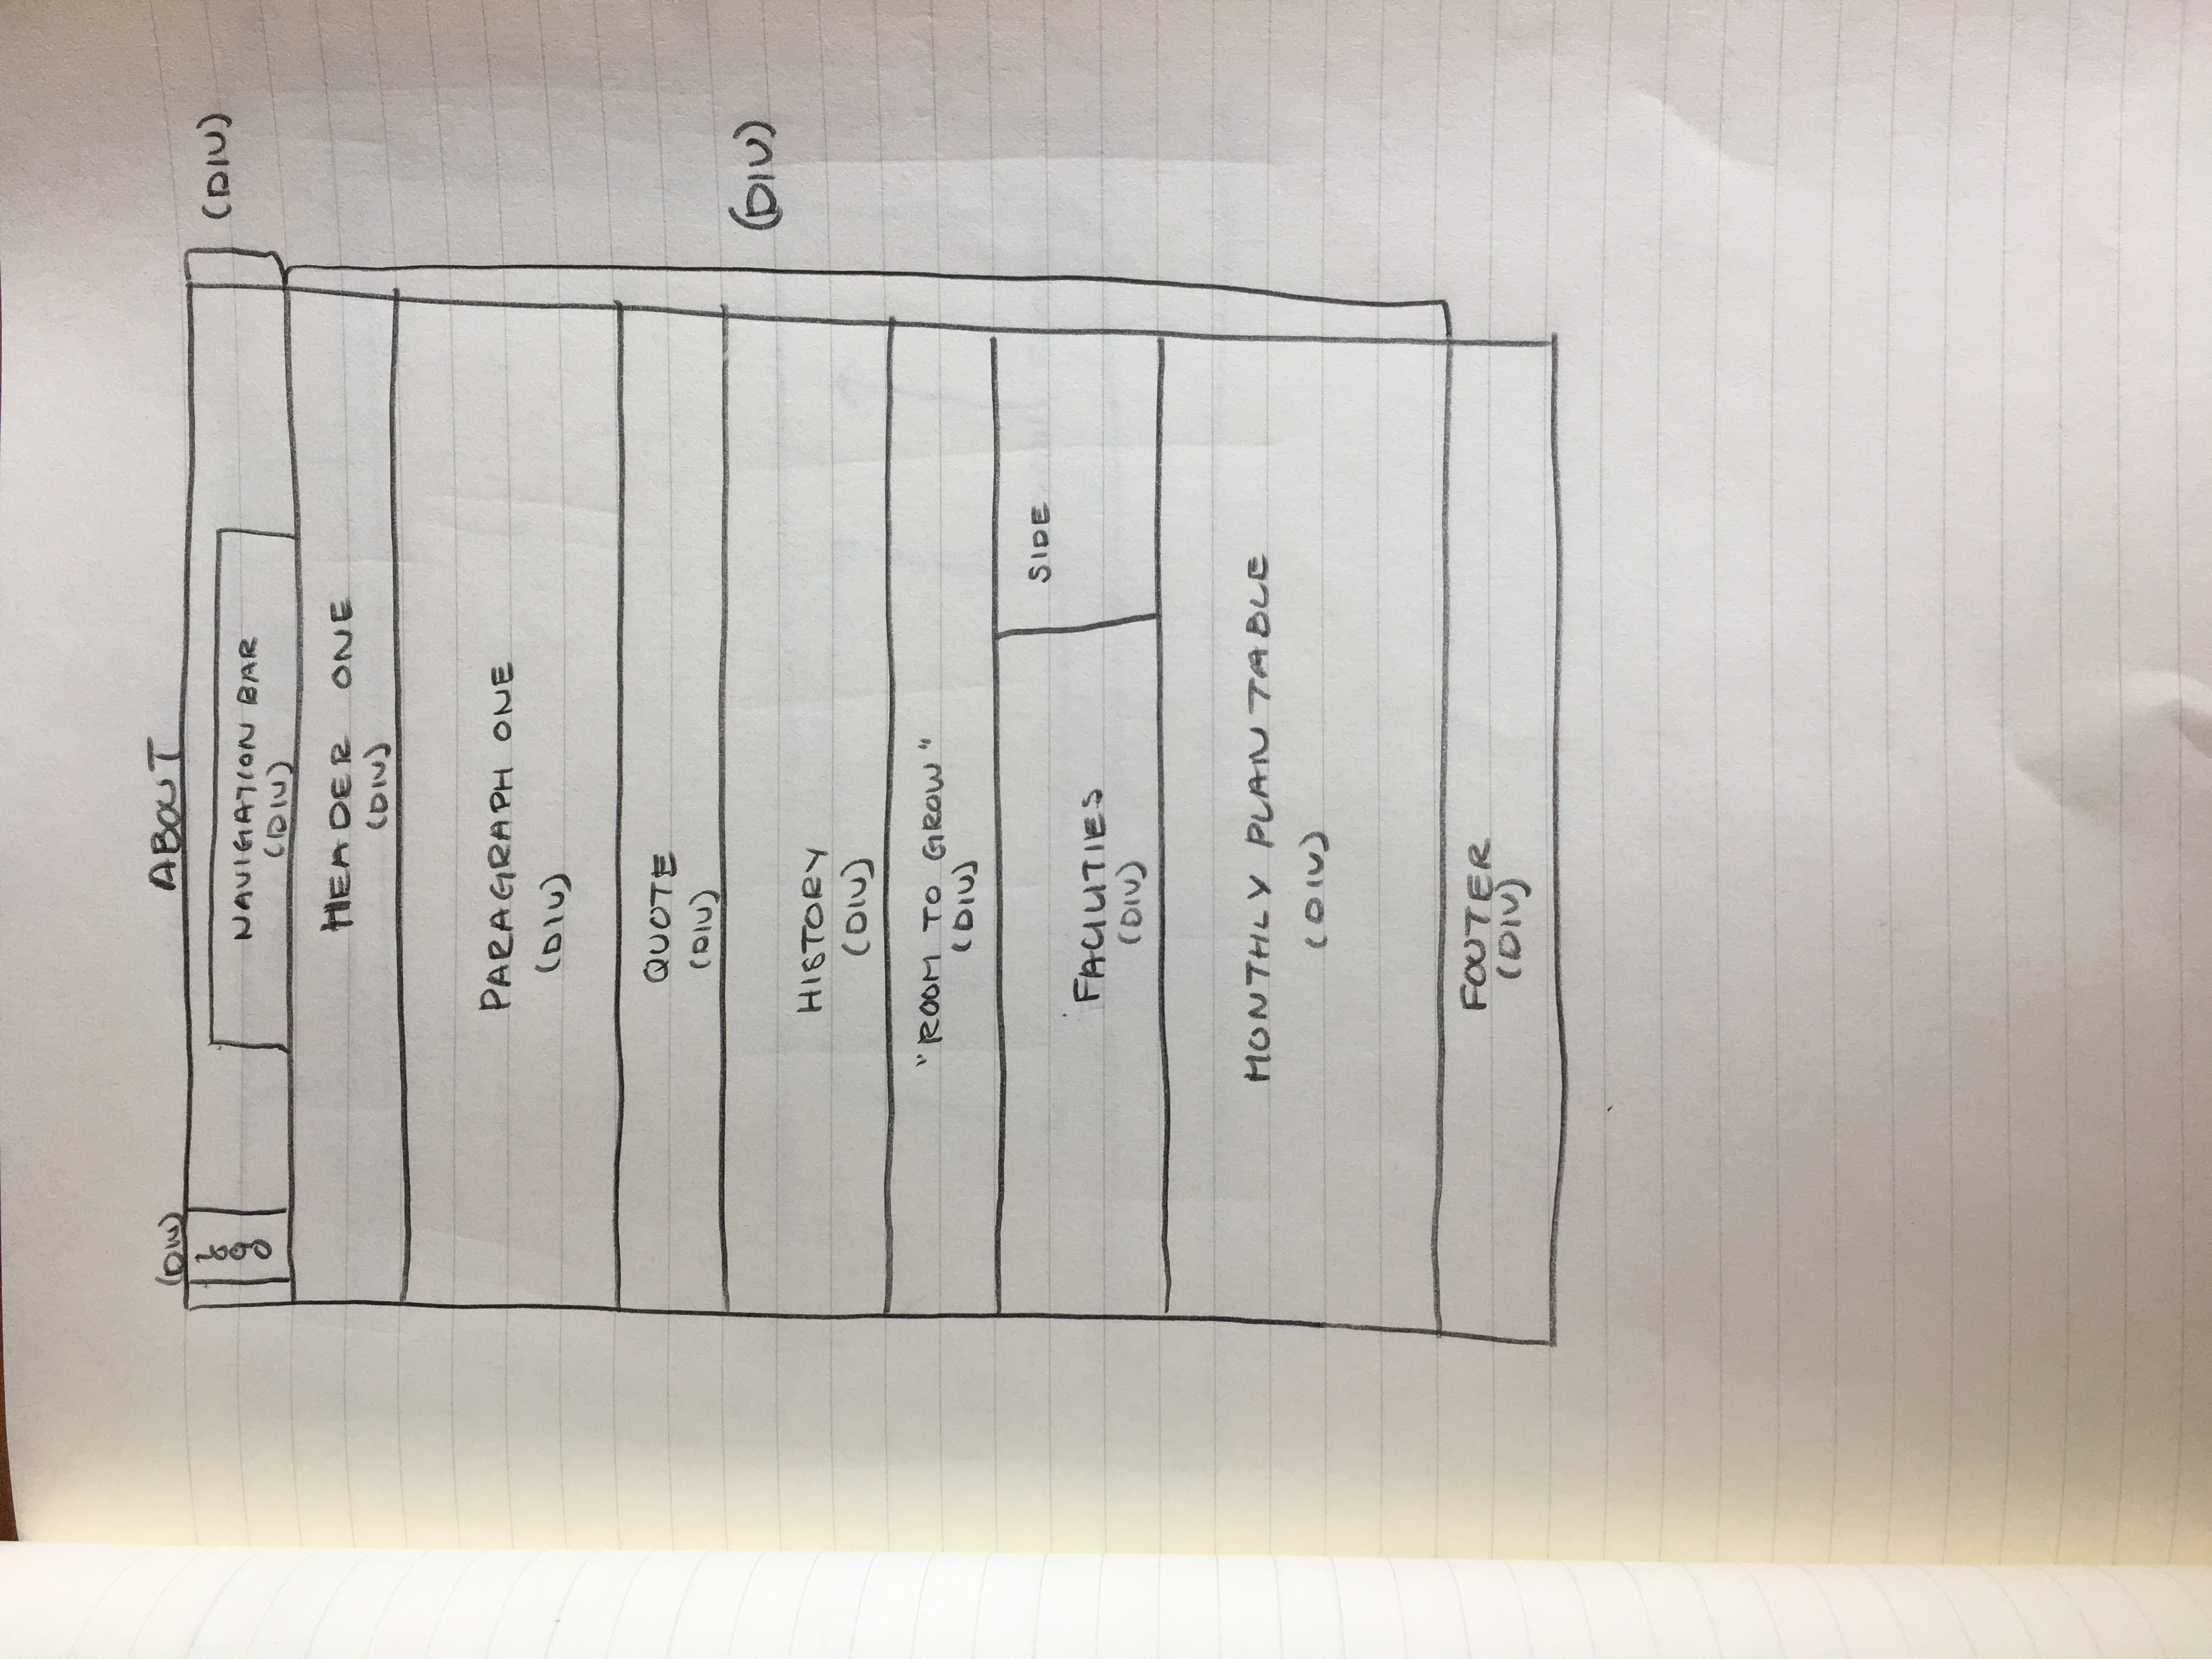 ABOUT
(DIV)
LOGO
(DIV)
NAVIGATION BAR
(DIV)
HEADER ONE
(DIV)
PARAGRAPH ONE
(DIV)
QUOTE
(DIV)
(DIV)
HISTORY
(DIV)
"ROOM TO GROW"
(DIV)
SIDE
FACILITIES
(DIV)
MONTHLY PLAN TABLE
(DIV)
FOOTER
(DIV)